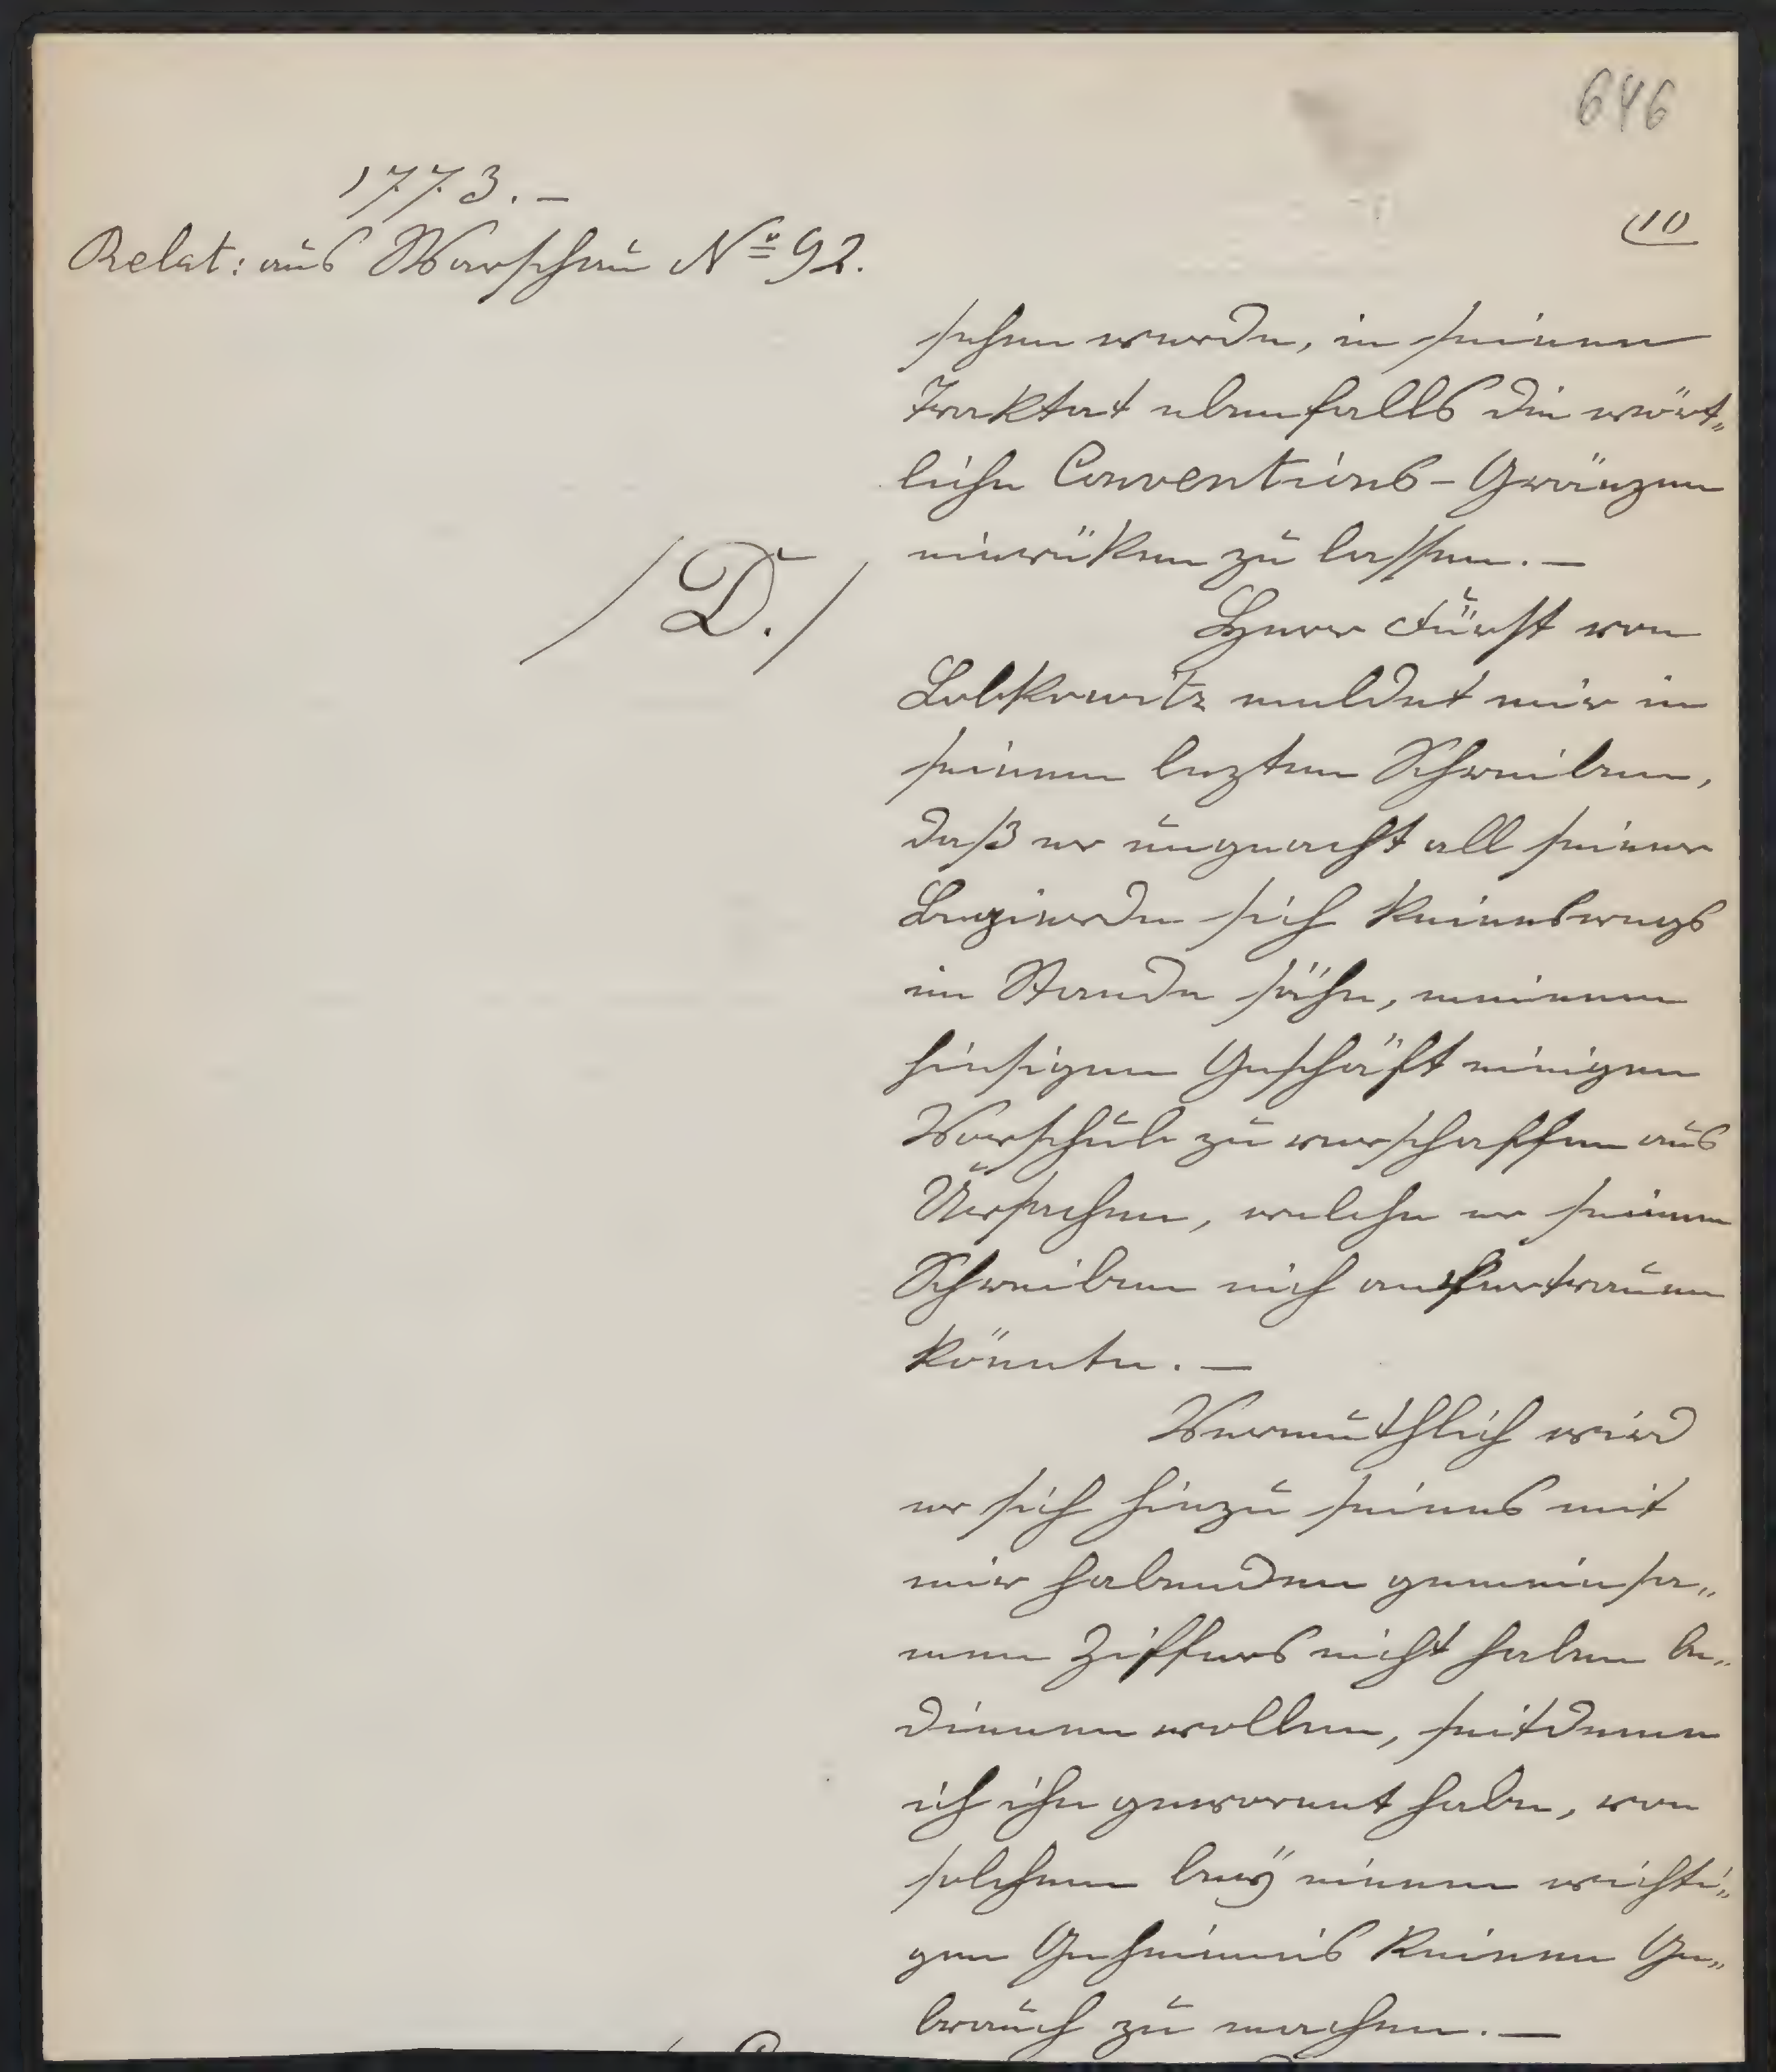 646
1773.–
Relat: aus Warschau No 92.
(10
sehen wurde, in seinen
Traktat ebenfalls die wört„
liche Conventions-Gränzen
einrüken zu lassen.–
/D./
Herr Fürst von
Lobkowitz meldet mir in
seinem lezten Schreiben,
daß er ungeacht all seiner
Begierde sich keineswegs
im Stande sähe, meinem
hiesigen Geschäft einigen
Vorschub zu verschaffen aus
Ursachen, welche er seinem
Schreiben nich anvertrauen
könnte.–
Vermuthlich wird
er sich hiezu seines mit
mir habenden gemeinsa„
men Ziffers nicht haben be„
dienen wollen, seitdeme
ich ihn gewarnt habe, von
solchem beÿ einem wichti„
gen Geheimnis keinen Ge„
brauch zu machen.–